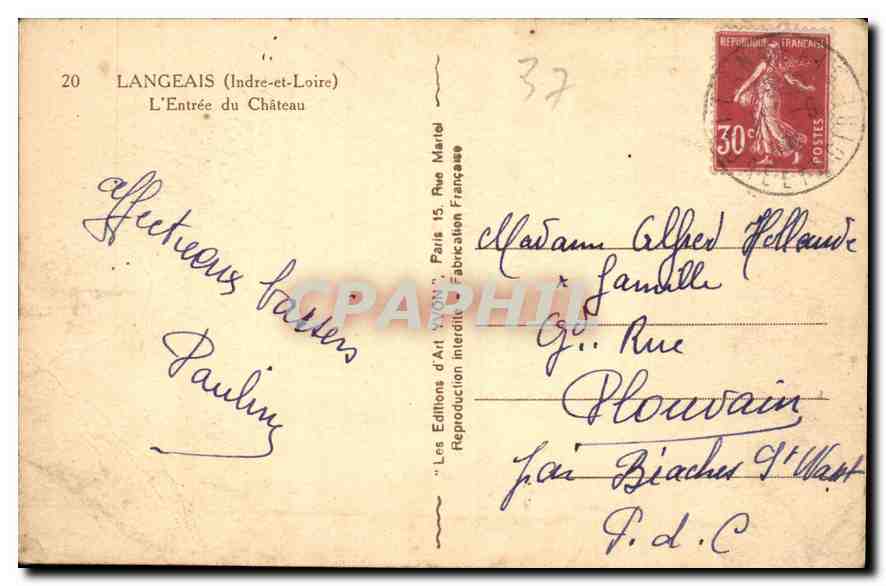 20 LANGEAIS (Indre-et-Loire)
L'Entrée du Château
37
REPUBLIQUE FRANÇAISE
30c
POSTES
Affectueux baisers
Pauline
"Les Editions d'Art YVON", Paris 15, Rue Martel
Reproduction interdite - Fabrication Française
CPAPHIL
Madame Alfred
& famille
Gde Rue
Plouvain
par Biaches St Wast
P. d. C